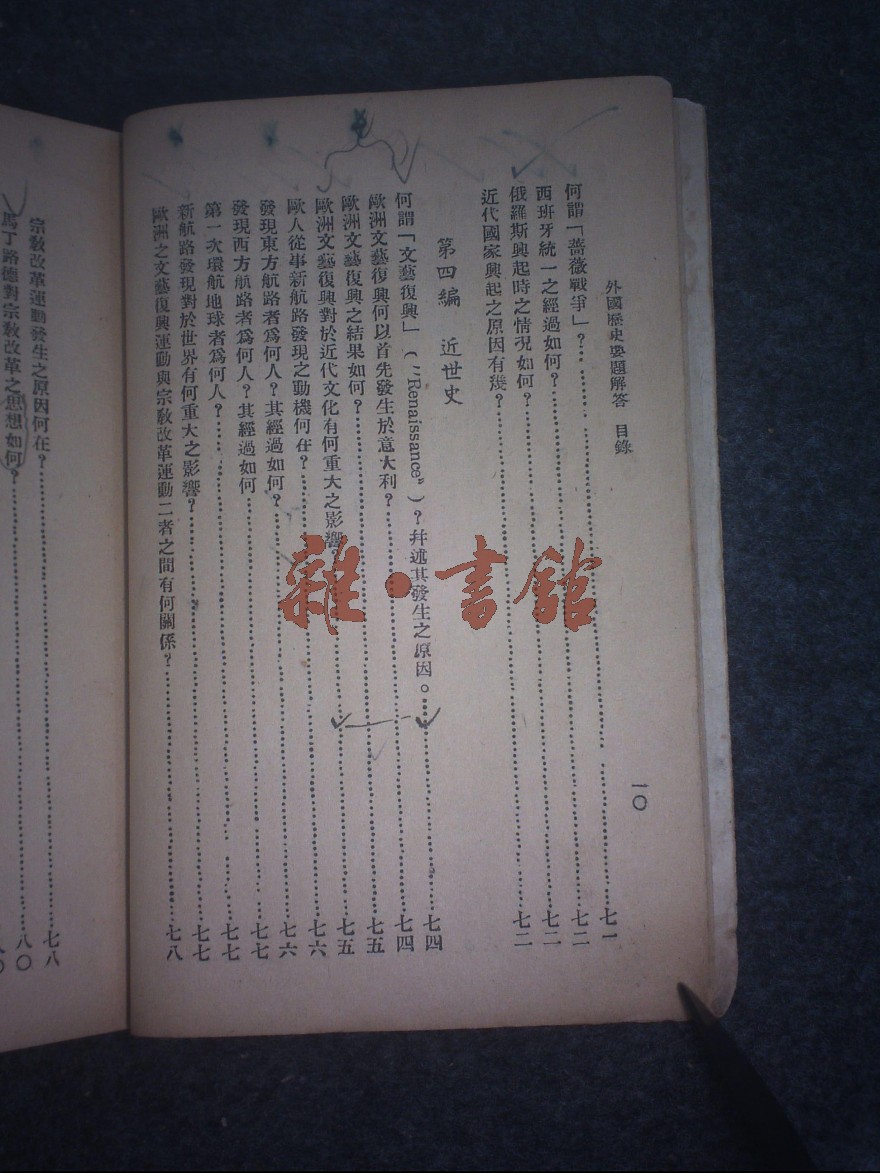 外國歷史要題解答 目錄
一〇
何謂「薔薇戰爭」?……七一
西班牙統一之經過如何?……七二
俄羅斯興起時之情況如何?……七二
近代國家興起之原因有幾?……七二
第四編 近世史
何謂「文藝復興」("Renaissance")?幷述其發生之原因。……七四
歐洲文藝復興何以首先發生於意大利?……七四
歐洲文藝復興之結果如何?……七五
歐洲文藝復興對於近代文化有何重大之影響?……七五
歐人從事新航路發現之動機何在?……七六
發現東方航路者爲何人?其經過如何?……七六
發現西方航路者爲何人?其經過如何……七七
第一次環航地球者爲何人?……七七
新航路發現對於世界有何重大之影響?……七七
歐洲之文藝復興運動與宗敎改革運動二者之間有何關係?……七八
宗敎改革運動發生之原因何在?……七八
馬丁路德對宗敎改革之思想如何?……八〇
雜·書館